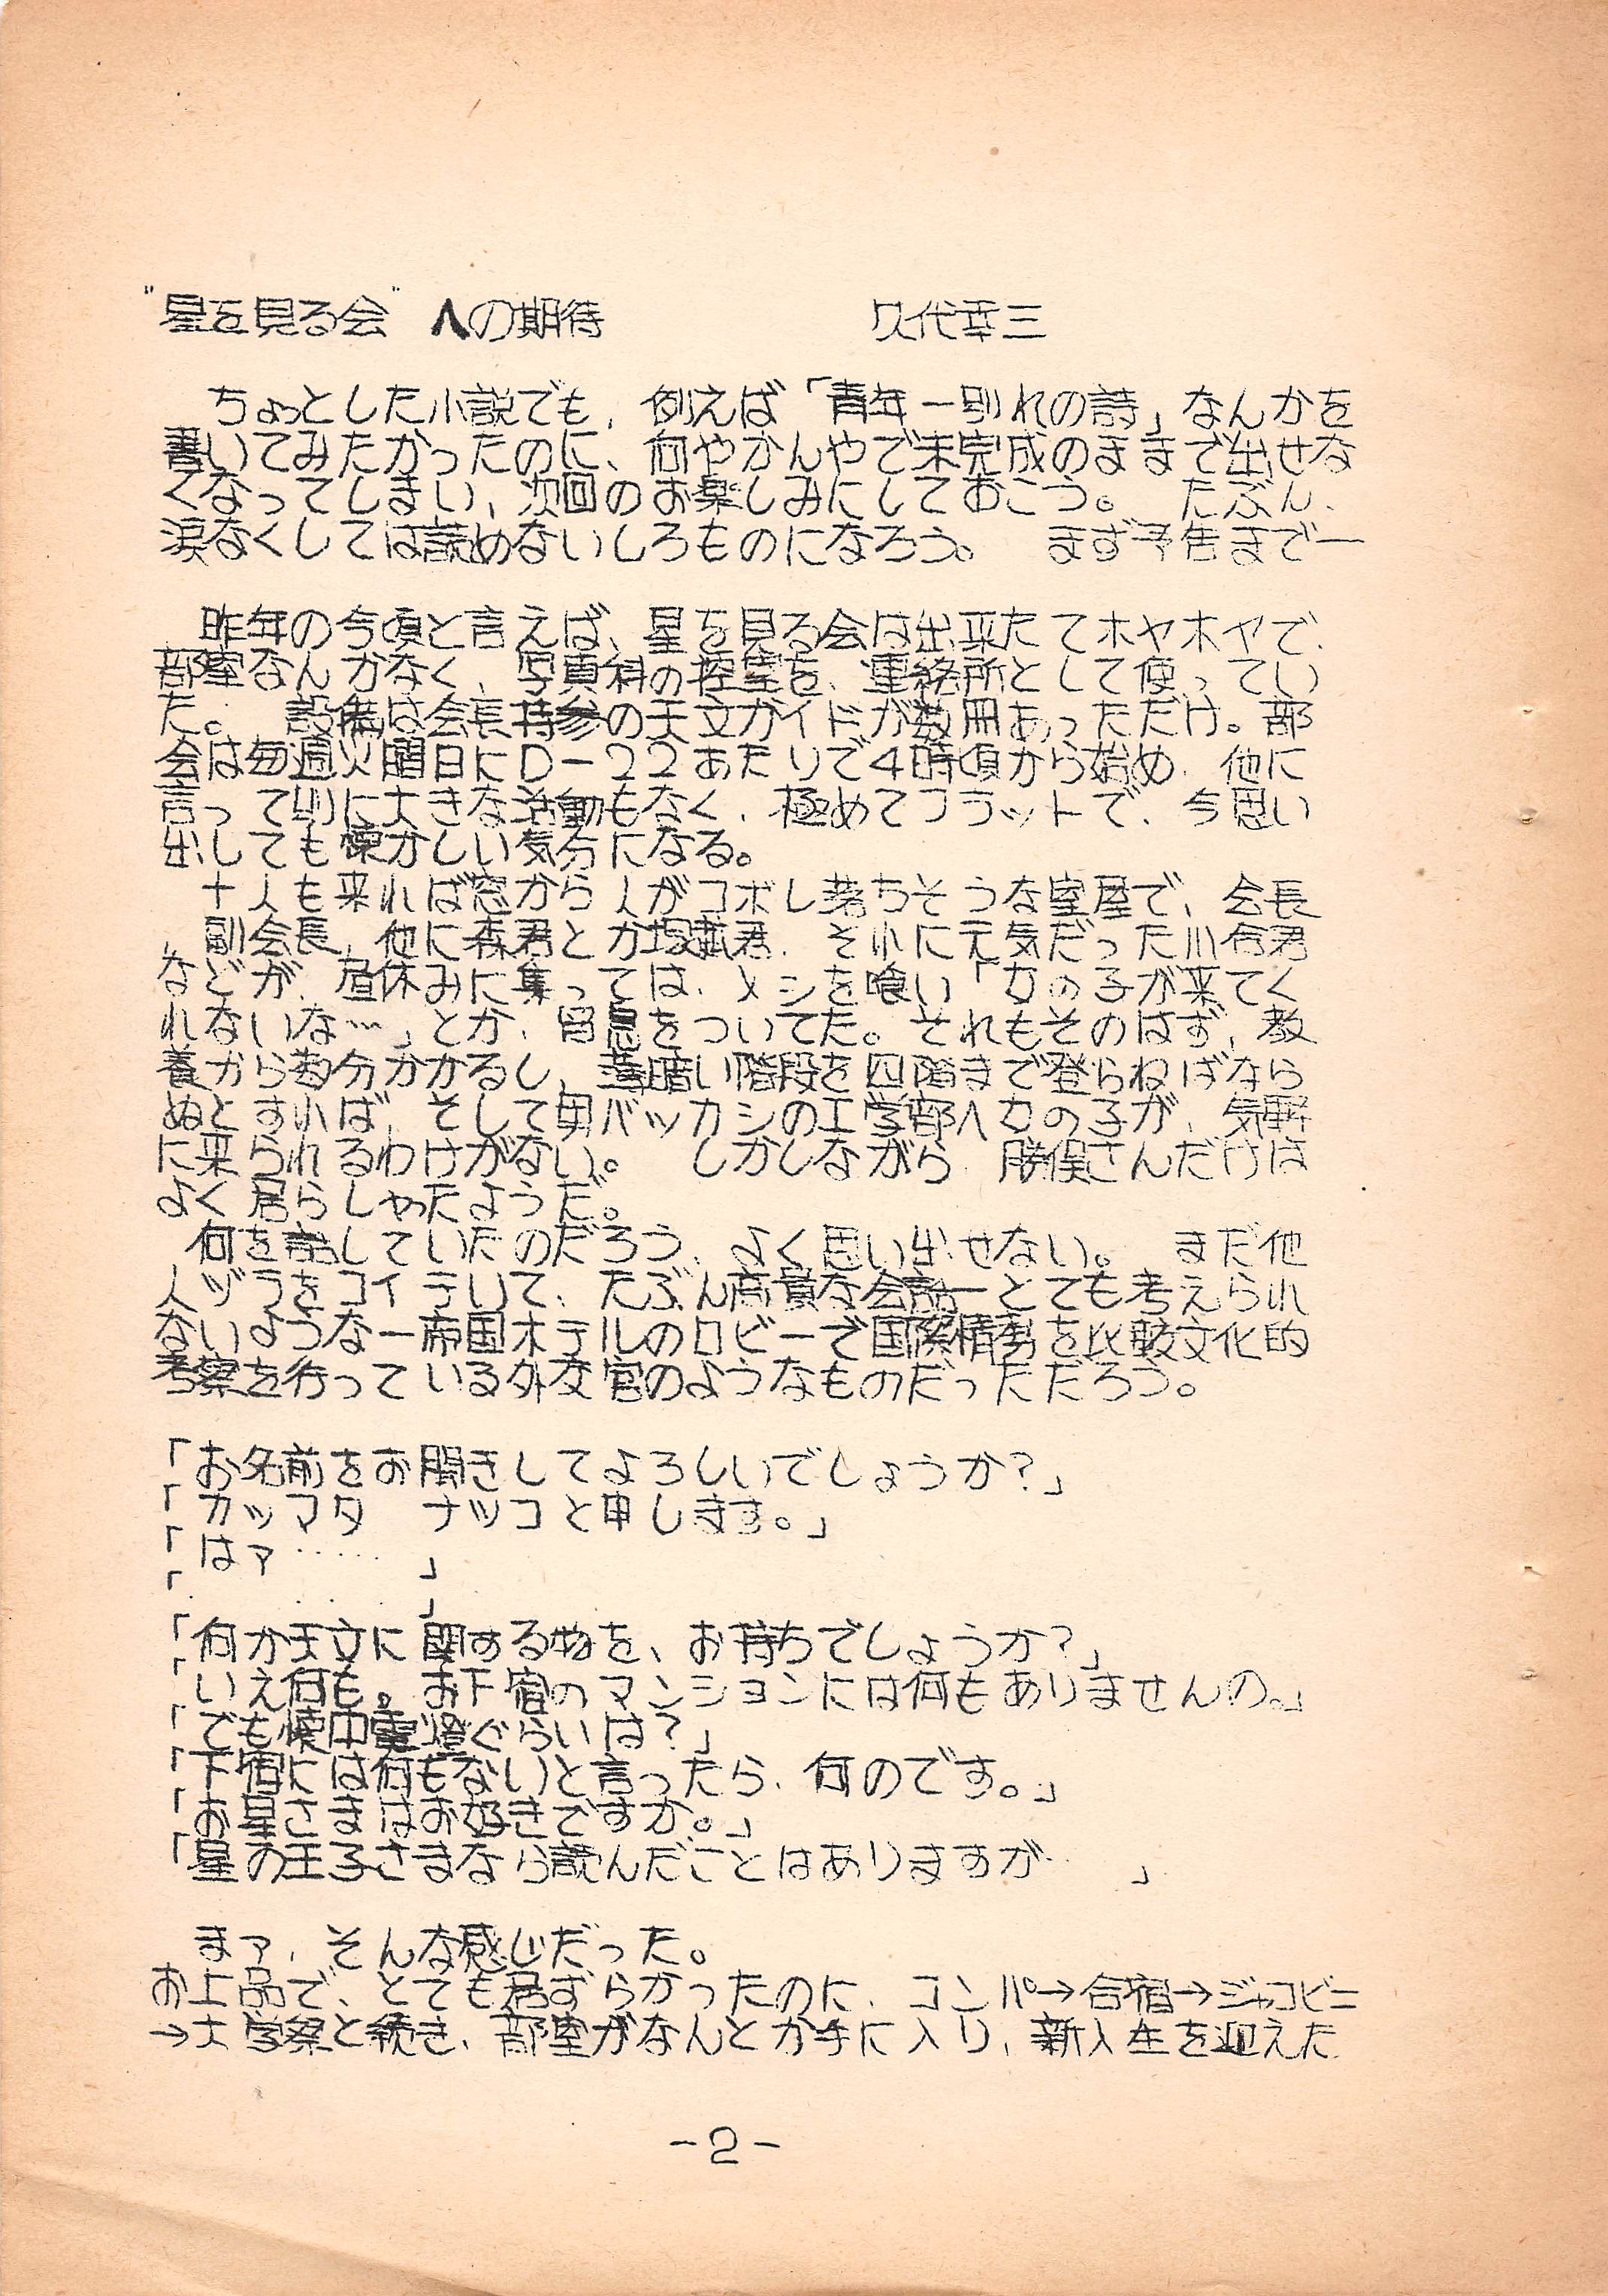 "星を見る会" への期待　　久代幸三
ちょっとした小説でも、例えば「青年ー別れの詩」なんかを
書いてみたかったのに、何やかんやで未完成のままで出せな
くなってしまい、次回のお楽しみにしておこう。　たぶん、
涙なくしては読めないしろものになろう。　まず予告まで―
昨年の今頃と言えば、星を見る会は出来たてホヤホヤで、
部室なんかなく、写真科の控室を、連絡所として使ってい
た。　設備は会長持参の天文ガイドが数冊あっただけ。部
会は毎週火曜日にD－22あたりで4時頃から始め、他に
言って別に大きな活動もなく、極めてフラットで、今思い
出しても懐かしい気分になる。
十人も来れば窓から人がコボレ落ちそうな室屋で、会長
、副会長、他に森君とか君、それに元気だった小合君
などが、昼休みに集っては、メシを喰い「女の子が来てく
れないな…」とか、溜息をついてた。それもそのはず、教
養から数分かかるし、薄暗い階段を四階まで登らねばなら
ぬとすれば、そして男バッカシの工学部へ女の子が、気軽
に来られるわけがない。　しかしながら、勝俣さんだけは
よく居らしゃたようだ。
何を話していたのだろう、よく思い出せない。　まだ他
人ヅラをコイテいて、たぶん高貴な会話ーとても考えられ
ないようなー帝国ホテルのロビーで国際情勢を比較文化的
考察を行っている外交官のようなものだっただろう。
「お名前をお聞きしてよろしいでしょうか？」
「カツマタ　ナツコと申します。」
「はァ‥‥‥　」
「．　．　．　．　」
「何か天文に関する物を、お持ちでしょうか？」
「いえ何も。お下宿のマンションには何もありませんの。」
「でも懐中電燈ぐらいは？」
「下宿には何もないと言ったら、何のです。」
「お星さまはお好きですか。」
「星の王子さまなら読んだことはありますが‥　」
まァ、そんな感じだった。
お上品で、とても居ずらかったのに、コンパ→合宿→ジャコビニ
→大学祭と続き、部室がなんとか手に入り、新入生を迎えた
－2－